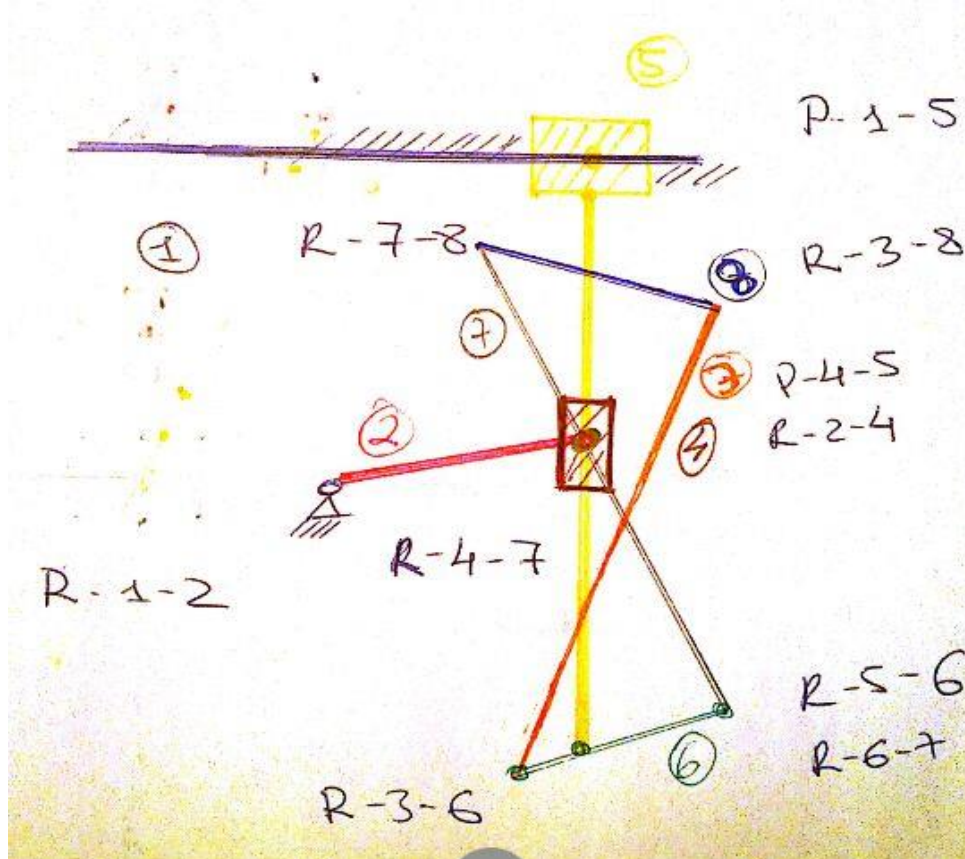 5
P-1-5
1
R-7-8
8
R-3-8
7
3
P-4-5
2
4
R-2-4
R-4-7
R-1-2
R-5-6
6
R-6-7
R-3-6